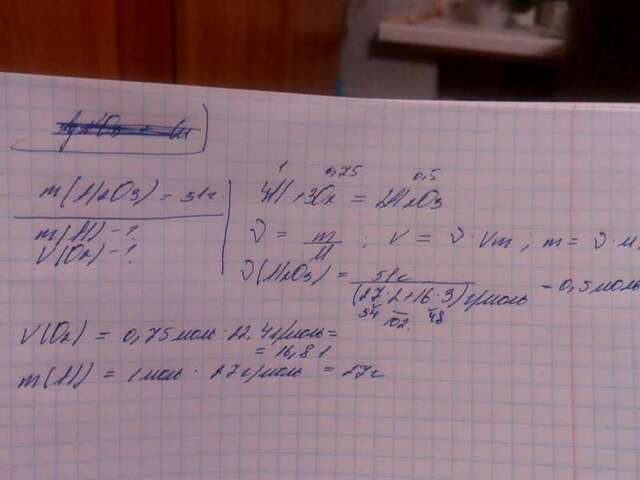 m(Al2O3) = 51г.
m(Al) - ?
V(O2) - ?
1 0,75 0,5
4Al + 3O2 = 2Al2O3
ν = m/M ; V = ν · Vm ; m = ν · M.
ν(Al2O3) = 51г / (27·2+16·3) г/моль = 0,5 моль
54 102 48
V(O2) = 0,75 моль · 22,4 л/моль =
= 16,8 л
m(Al) = 1 моль · 27 г/моль = 27г